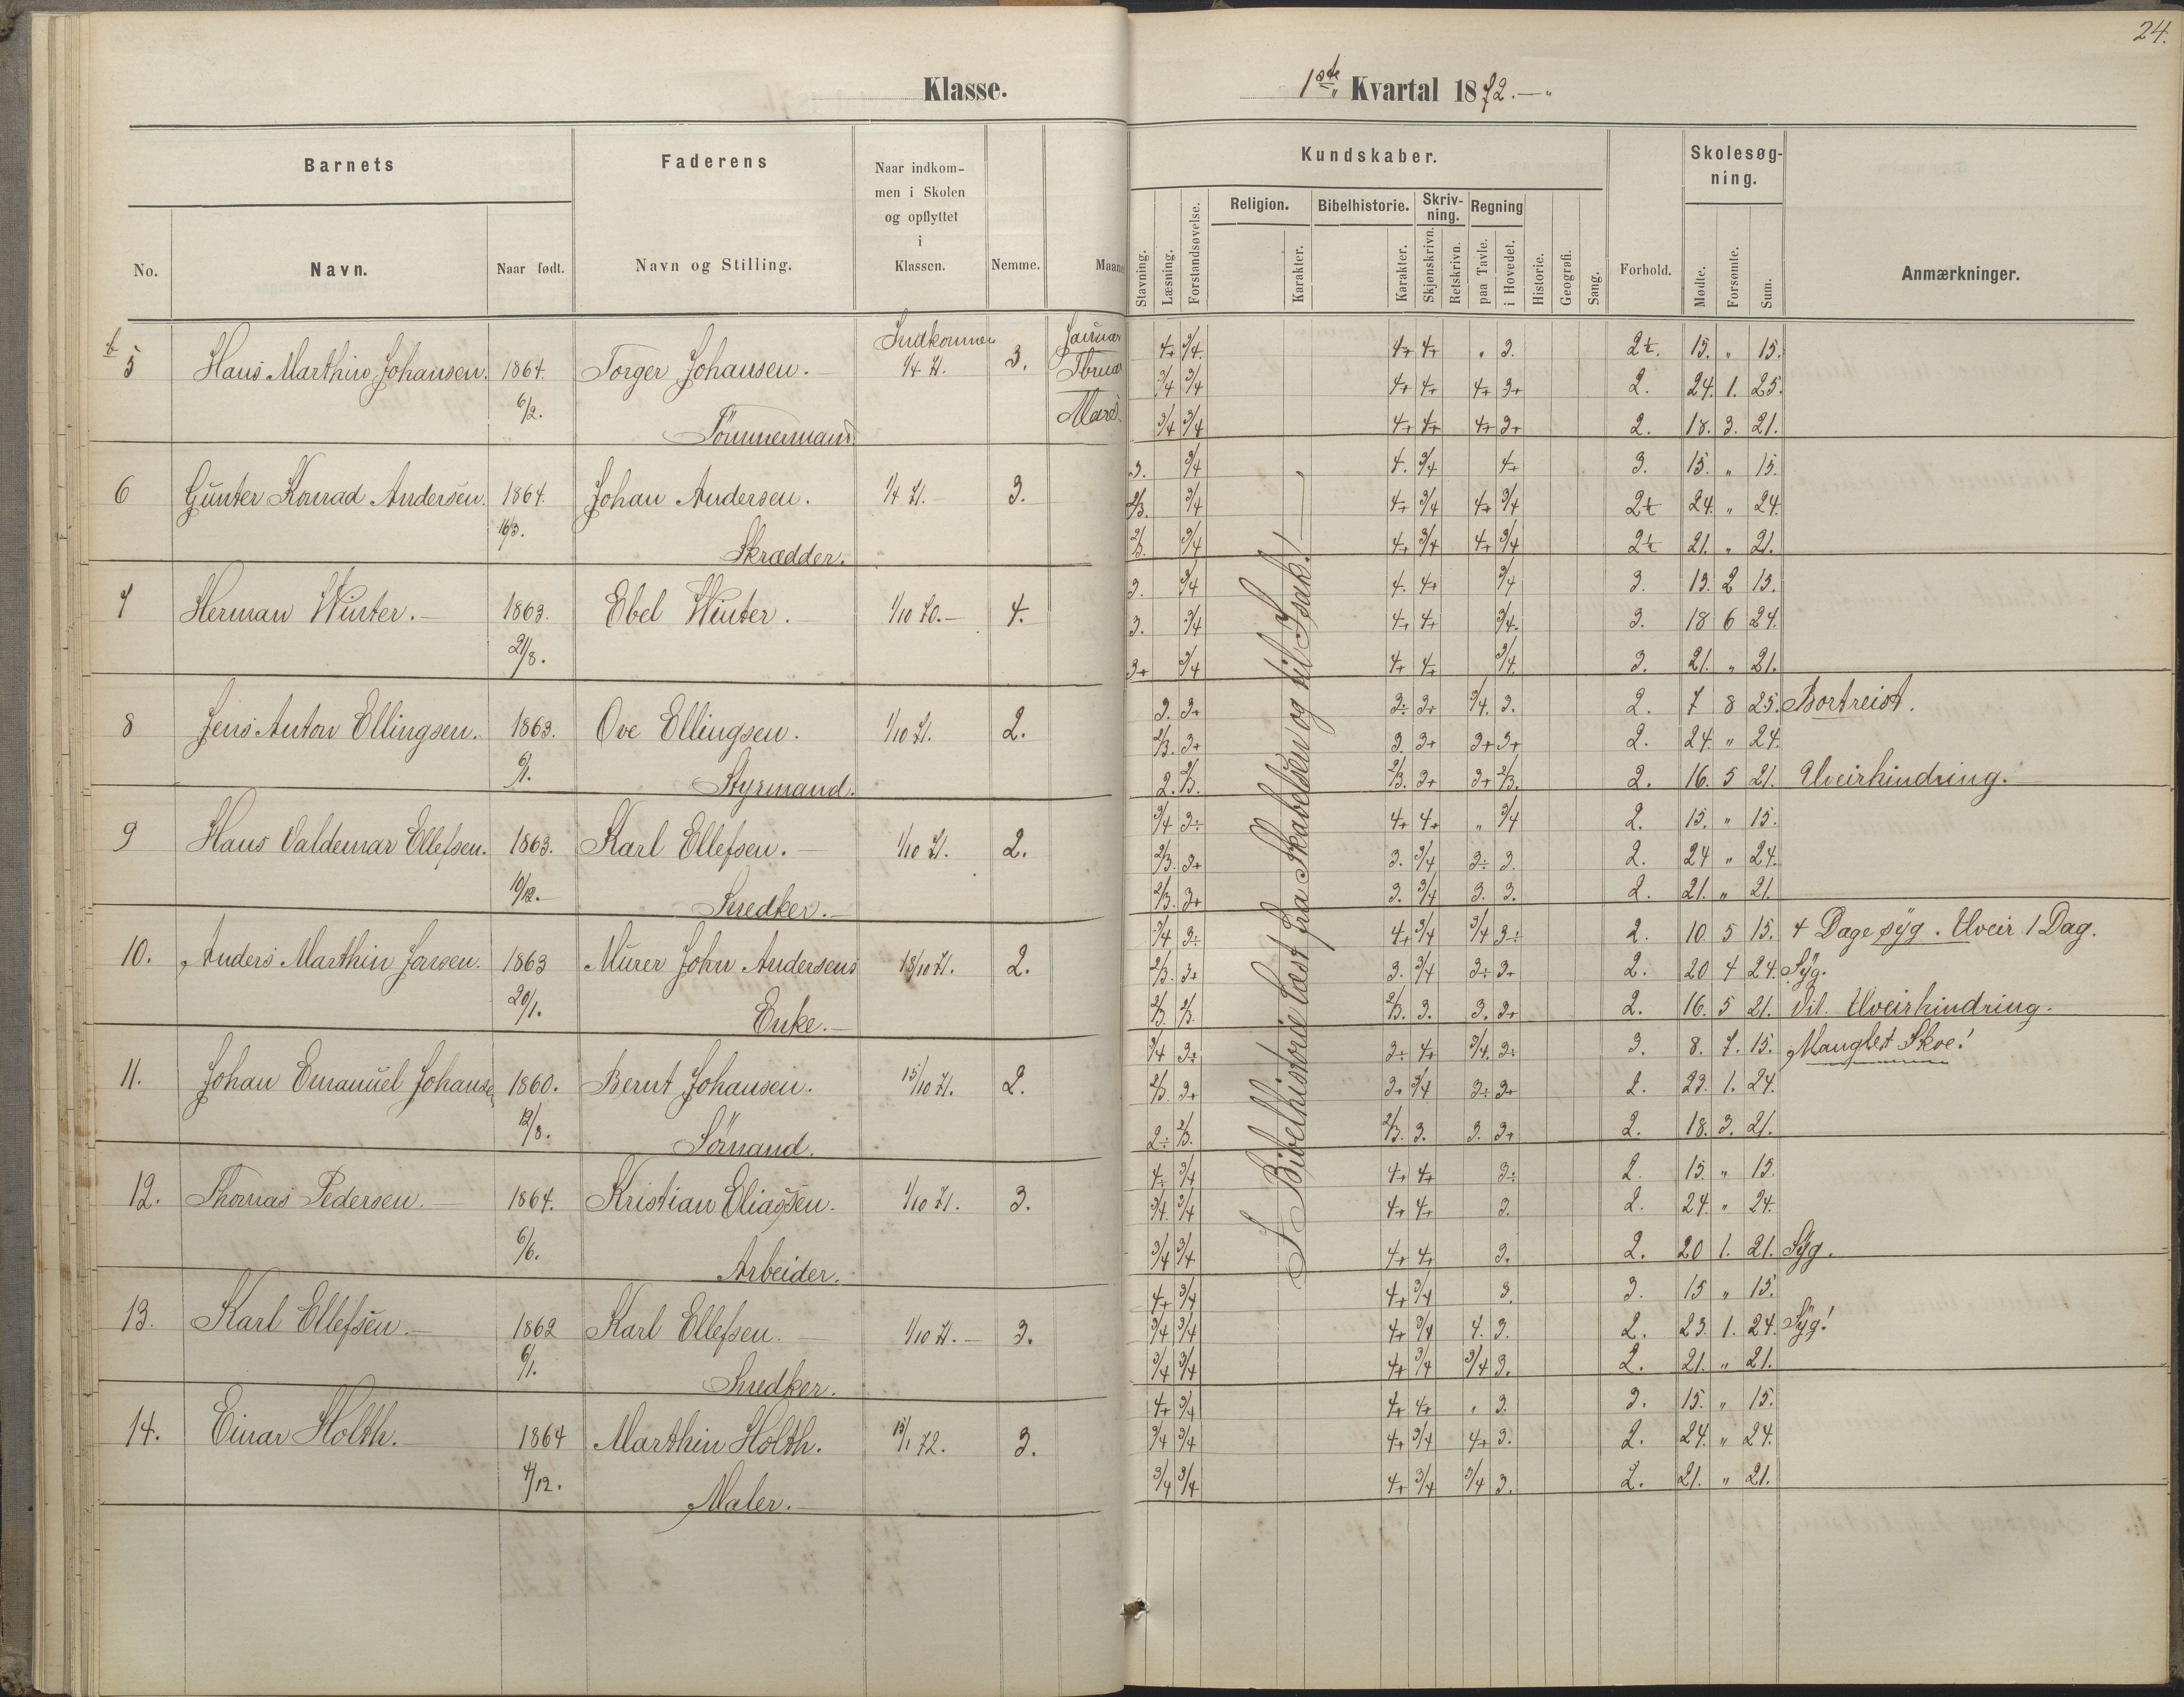 24.
Klasse.
1ste Kvartal 1872.
Barnets
Faderens
Naar indkom-
men i Skolen
og opflyttet
i
Klassen.
Nemme.
Maaned
No.
Navn.
Naar født.
Navn og Stilling.
Kundskaber.
Stavning.
Læsning.
Forstandsøvelse.
Religion.
Karakter.
Bibelhistorie.
Karakter.
Skriv-
ning.
Skjønskrivn.
Retskrivn.
Regning
paa Tavle.
i Hovedet.
Historie.
Geografi.
Sang.
Forhold.
Skolesøg-
ning.
Mødte.
Forsømte.
Sum.
Anmærkninger.
5 Hans Marthin Johansen. 1864. 6/2. Torger Johansen. Indkommen 1/4 71. 3. Januar
Tømmermand.
4+ 3/4. 4+ 4+ " 3. 2÷. 15. " 15.
3/4 3/4 4+ 4+ 4+ 3+ 2. 24. 1. 25.
3/4 3/4 4+ 4+ 4+ 3+ 2. 18. 3. 21.
6 Gunter Konrad Andersen. 1864. 16/3. Johan Andersen. 1/4 71. 3.
Skrædder.
3. 3/4 4. 3/4 4+ 3. 15. " 15.
2/3. 3/4 4+ 3/4 4+ 3/4 2÷ 24. " 24.
2/3. 3/4 4+ 3/4 4+ 3/4 2÷ 21. " 21.
7 Herman Winter. 1863. 21/8. Ebel Winter. 1/10 70. 4.
3. 3/4 4. 4+ 3/4 3. 13. 2 15.
3. 3/4 4+ 4+ 3/4. 3. 18 6 24.
3+ 3/4 4+ 4+ 3/4. 3. 21. " 21.
8 Jens Anton Ellingsen. 1863. 6/1. Ove Ellingsen. 1/10 71. 2.
Styrmand.
3. 3+ 3÷ 3+ 3/4. 3. 2. 7 8 25. Bortreist.
2/3. 3+ 3. 3+ 3+ 3+ 2. 24. " 24.
2. 2/3. 2/3. 3+ 3+ 2/3. 2. 16. 5 21. Uveirhindring.
9 Hans Valdemar Ellefsen. 1863. 10/12. Karl Ellefsen. 1/10 71. 2.
Snedker.
3/4 3÷ 4+ 4+ " 3/4 2. 15. " 15.
2/3. 3+ 3. 3/4 3÷ 3. 2. 24 " 24.
2/3. 3+ 3. 3/4 3. 3. 2. 21. " 21.
10. Anders Marthin Jansen. 1863 20/1. Murer John Andersens 18/10 71. 2.
Enke.
3/4 3÷ 4+ 3/4 3/4 3÷ 2. 10 5 15. 4 Dage syg. Uveir 1 Dag.
2/3. 3+ 3. 3/4 3÷ 3+ 2. 20 4 24. Syg.
2/3. 2/3. 2/3. 3. 3. 3+ 2. 16. 5 21. Dit. Uveirhindring.
11. Johan Emanuel Johansen 1860. 12/8. Bernt Johansen. 15/10 71. 2.
Sömand.
3/4 3÷ 3÷ 4+ 3/4. 3÷ 3. 8. 7. 15. Manglet Skoe!
2/3. 3+ 3+ 3/4 3÷ 3+ 2. 23. 1. 24.
2÷ 2/3. 2/3. 3. 3. 3+ 2. 18. 3. 21.
12. Thomas Pedersen. 1864. 6/6. Kristian Eliassen. 1/10 71. 3.
Arbeider.
4÷ 3/4 4+ 4+ 3÷ 2. 15. " 15.
3/4. 3/4 4+ 4+ 3. 2. 24. " 24.
3/4 3/4 4+ 4+ 3. 2. 20 1. 21. Syg.
13. Karl Ellefsen. 1862 6/1. Karl Ellefsen. 1/10 71. 3.
Snedker.
4+ 3/4 4+ 3/4 3. 3. 15 " 15.
3/4 3/4 4+ 3/4 4. 3. 2. 23. 1. 24. Syg!
3/4 3/4 4+ 3/4 3/4 3. 2. 21. " 21.
14. Einar Holth. 1864 4/12. Marthin Holth. 15/1 72. 3.
Maler.
4+ 3/4 4+ 4+ " 3. 3. 15. " 15.
3/4 3/4 4+ 3/4 4+ 3. 2. 24. " 24.
3/4 3/4 4+ 3/4 3/4 3. 2. 21. " 21.
I Bibelhistorie læst fra Skabelsen og til Isak!